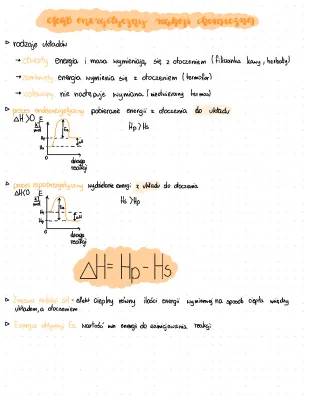 efekt energetyczny reakcji chemicznej
▷ rodzaje układów
→ otwarty energia i masa wymieniają się z otoczeniem (filiżanka kawy, herbaty)
→ zamknięty energia wymienia się z otoczeniem (termofor)
→ izolowany nie następuje wymiana (termos)
▷ proces endoenergetyczny pobieranie energii z otoczenia do układu
ΔH>0 E
Hp>Hs
Ea
ΔH
Hp
Hs
0
droga
reakcji
▷ proces egzoenergetyczny wydzielanie energii z układu do otoczenia
ΔH<0 E
Hs>Hp
Ea
ΔH
0
droga
reakcji
ΔH=Hp-Hs
▷ Zmiana entalpii ΔH - efekt cieplny równy ilości energii wymienionej na sposób ciepła między
układem, a otoczeniem
▷ Energia aktywacji Ea wartość min energii do zainicjowania reakcji